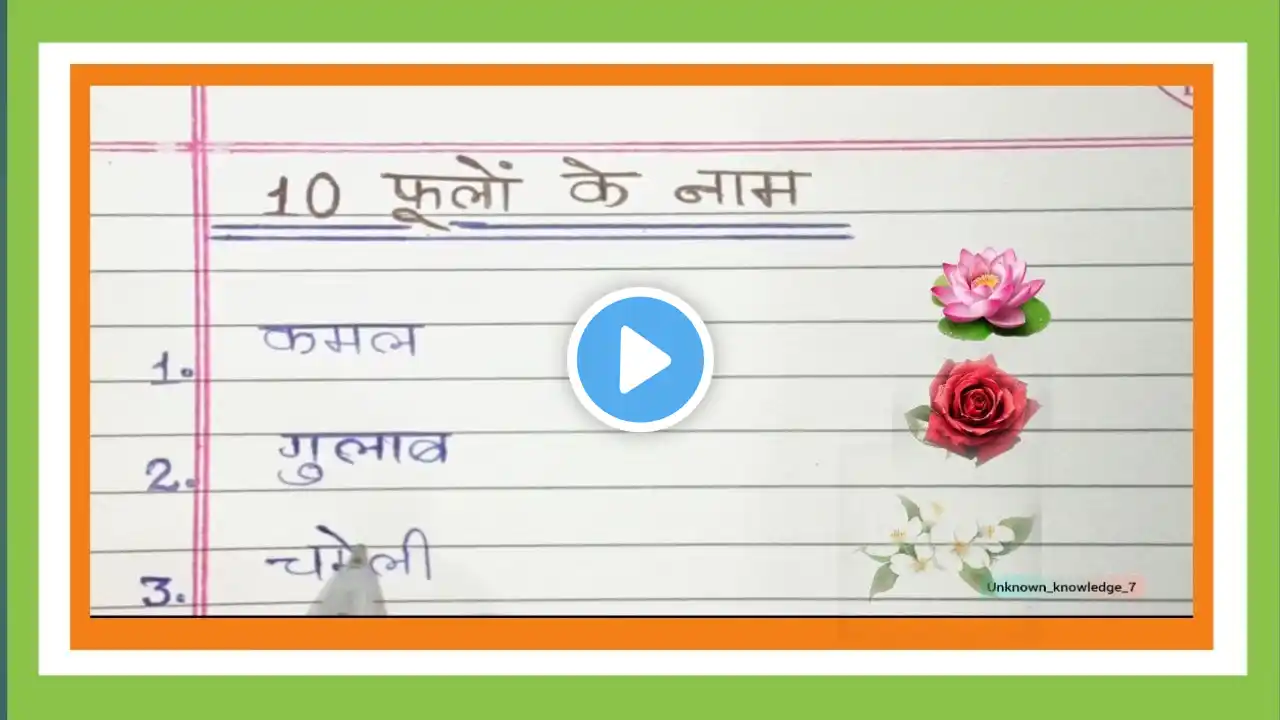 10 फूलों के नाम
1. कमल
2. गुलाब
3. चमेली
Unknown_knowledge_7